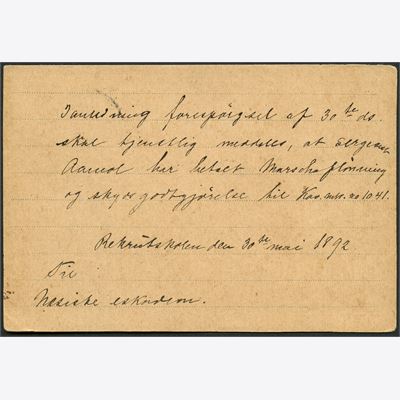 Ianledning forespørgsel af 30te ds.
skal tjenstlig meddeles, at Sergeant
Aamot har betalt
og godtgjørelse til Kav. no 1041.
Rekrutskolen den 30te mai 1892
Til
eskadron.